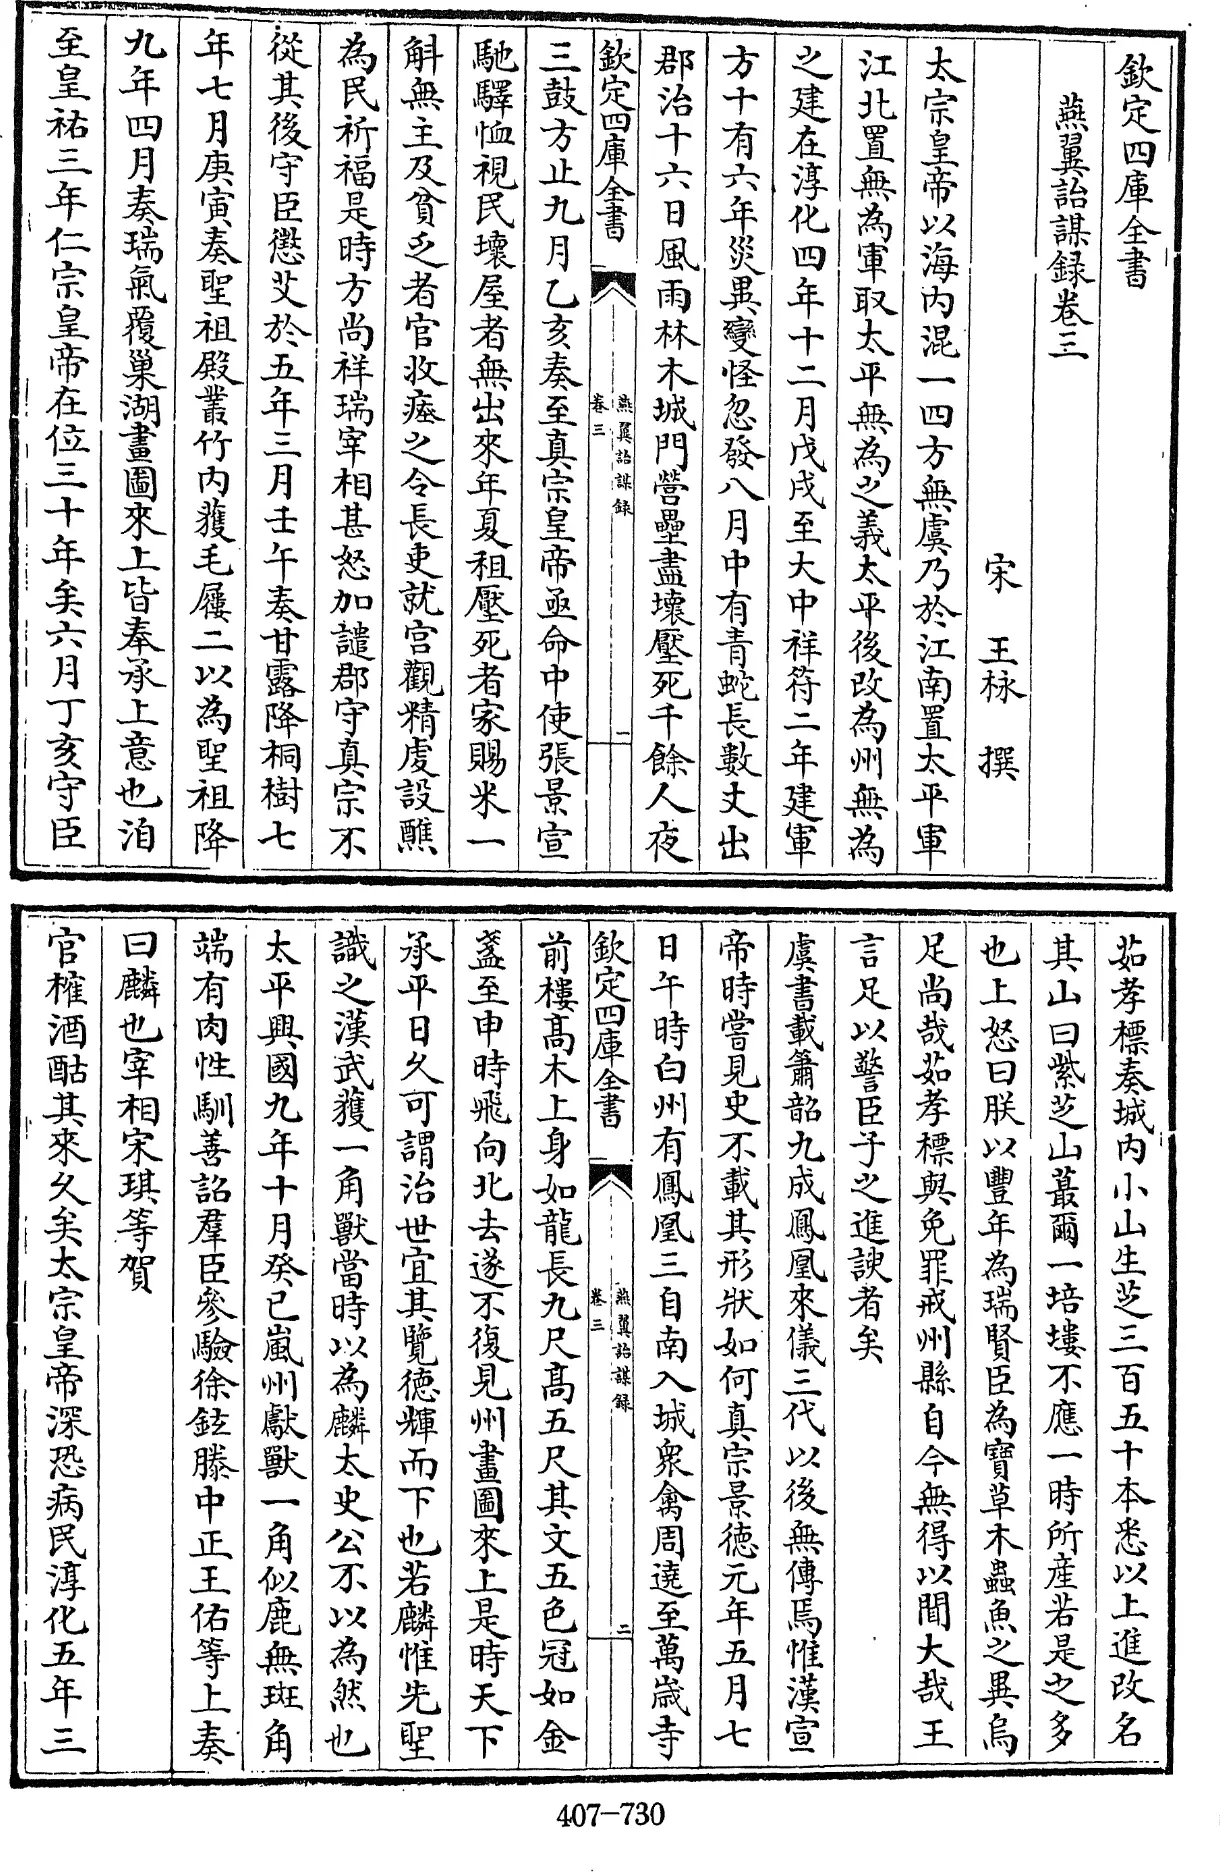 欽定四庫全書
燕翼詒謀録卷三
宋 王栐 撰
太宗皇帝以海内混一四方無虞乃於江南置太平軍
江北置無為軍取太平無為之義太平後改為州無為
之建在淳化四年十二月戊戌至大中祥符二年建軍
方十有六年災異變怪忽發八月中有青蛇長數丈出
郡治十六日風雨林木城門營壘盡壞壓死千餘人夜
欽定四庫全書
燕翼詒謀録
卷三
一
三鼓方止九月乙亥奏至真宗皇帝亟命中使張景宣
馳驛恤視民壞屋者無出來年夏租壓死者家賜米一
斛無主及貧乏者官收瘞之令長吏就宫觀精虔設醮
為民祈福是時方尚祥瑞宰相甚怒加譴郡守真宗不
從其後守臣懲艾於五年三月壬午奏甘露降桐樹七
年七月庚寅奏聖祖殿叢竹内獲毛屨二以為聖祖降
九年四月奏瑞氣覆巢湖畫圖來上皆奉承上意也洎
至皇祐三年仁宗皇帝在位三十年矣六月丁亥守臣
茹孝標奏城内小山生芝三百五十本悉以上進改名
其山曰紫芝山蕞爾一培塿不應一時所産若是之多
也上怒曰朕以豐年為瑞賢臣為寶草木蟲魚之異烏
足尚哉茹孝標與免罪戒州縣自今無得以聞大哉王
言足以警臣子之進諛者矣
虞書載簫韶九成鳳凰來儀三代以後無傳焉惟漢宣
帝時嘗見史不載其形狀如何真宗景德元年五月七
日午時白州有鳳凰三自南入城衆禽周遶至萬歳寺
欽定四庫全書
燕翼詒謀録
卷三
二
前樓高木上身如龍長九尺高五尺其文五色冠如金
盞至申時飛向北去遂不復見州畫圖來上是時天下
承平日久可謂治世宜其覽德輝而下也若麟惟先聖
識之漢武獲一角獸當時以為麟太史公不以為然也
太平興國九年十月癸巳嵐州獻獸一角似鹿無斑角
端有肉性馴善詔羣臣參驗徐鉉滕中正王佑等上奏
曰麟也宰相宋琪等賀
官榷酒酤其來久矣太宗皇帝深恐病民淳化五年三
407-730